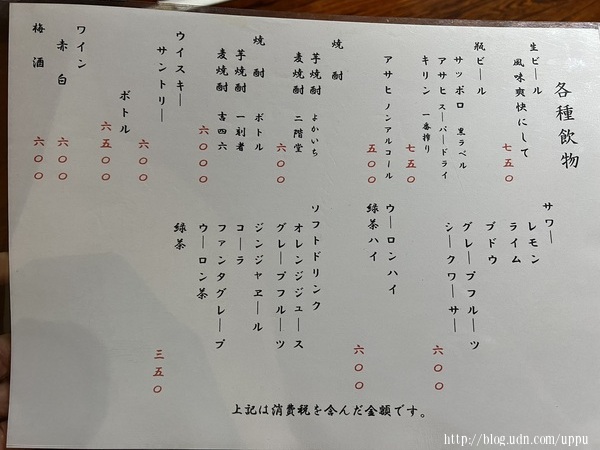 各種飲物
生ビール
風味爽快にして
七五〇
瓶ビール
サッポロ 黒ラベル
アサヒ スーパードライ
キリン 一番搾り
七五〇
アサヒ ノンアルコール
五〇〇
焼酎
芋焼酎 よかいち
麦焼酎 二階堂
六〇〇
焼酎 ボトル
芋焼酎 一刻者
麦焼酎 吉四六
六〇〇〇
ウイスキー
サントリー
六〇〇
ボトル
六五〇〇
ワイン
赤 白
六〇〇
梅酒
六〇〇
サワー
レモン
ライム
ブドウ
グレープフルーツ
シークワーサー
六〇〇
ウーロンハイ
緑茶ハイ
六〇〇
ソフトドリンク
オレンジジュース
グレープフルーツ
ジンジャエール
コーラ
ファンタグレープ
ウーロン茶
緑茶
三五〇
上記は消費税を含んだ金額です。
http://blog.udn.com/uppu